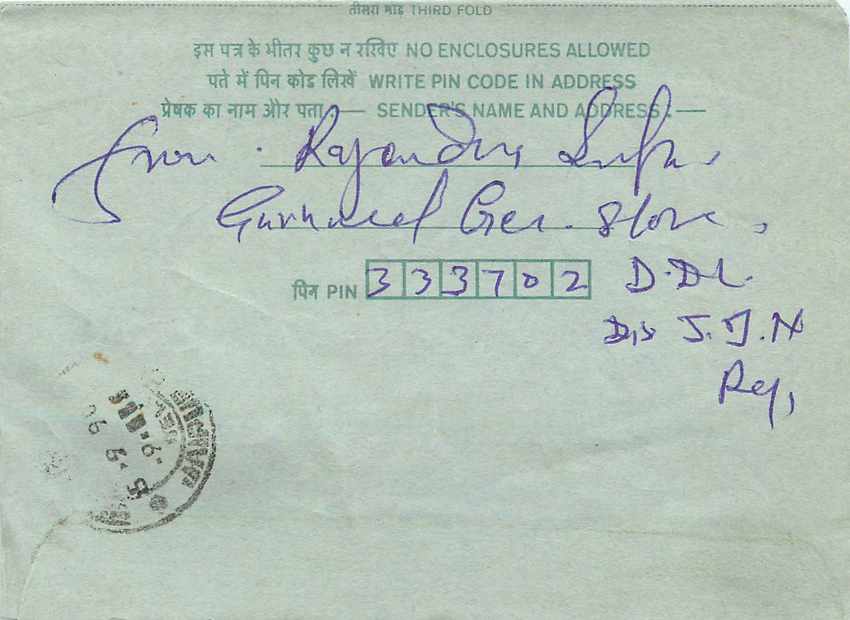 तीसरा मोड़ THIRD FOLD
इस पत्र के भीतर कुछ न रखिए NO ENCLOSURES ALLOWED
पते में पिन कोड लिखें WRITE PIN CODE IN ADDRESS
प्रेषक का नाम और पता :— SENDER'S NAME AND ADDRESS :—
From. Rajendra
Gen. Store,
पिन PIN 333702 D.DL.
Dis J.J.N
Raj,